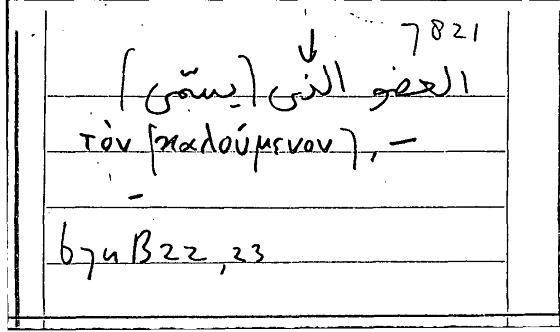 7821
العضو الذى (يسمّى)
τὸν [καλούμενον], –
–
67u B 22, 23